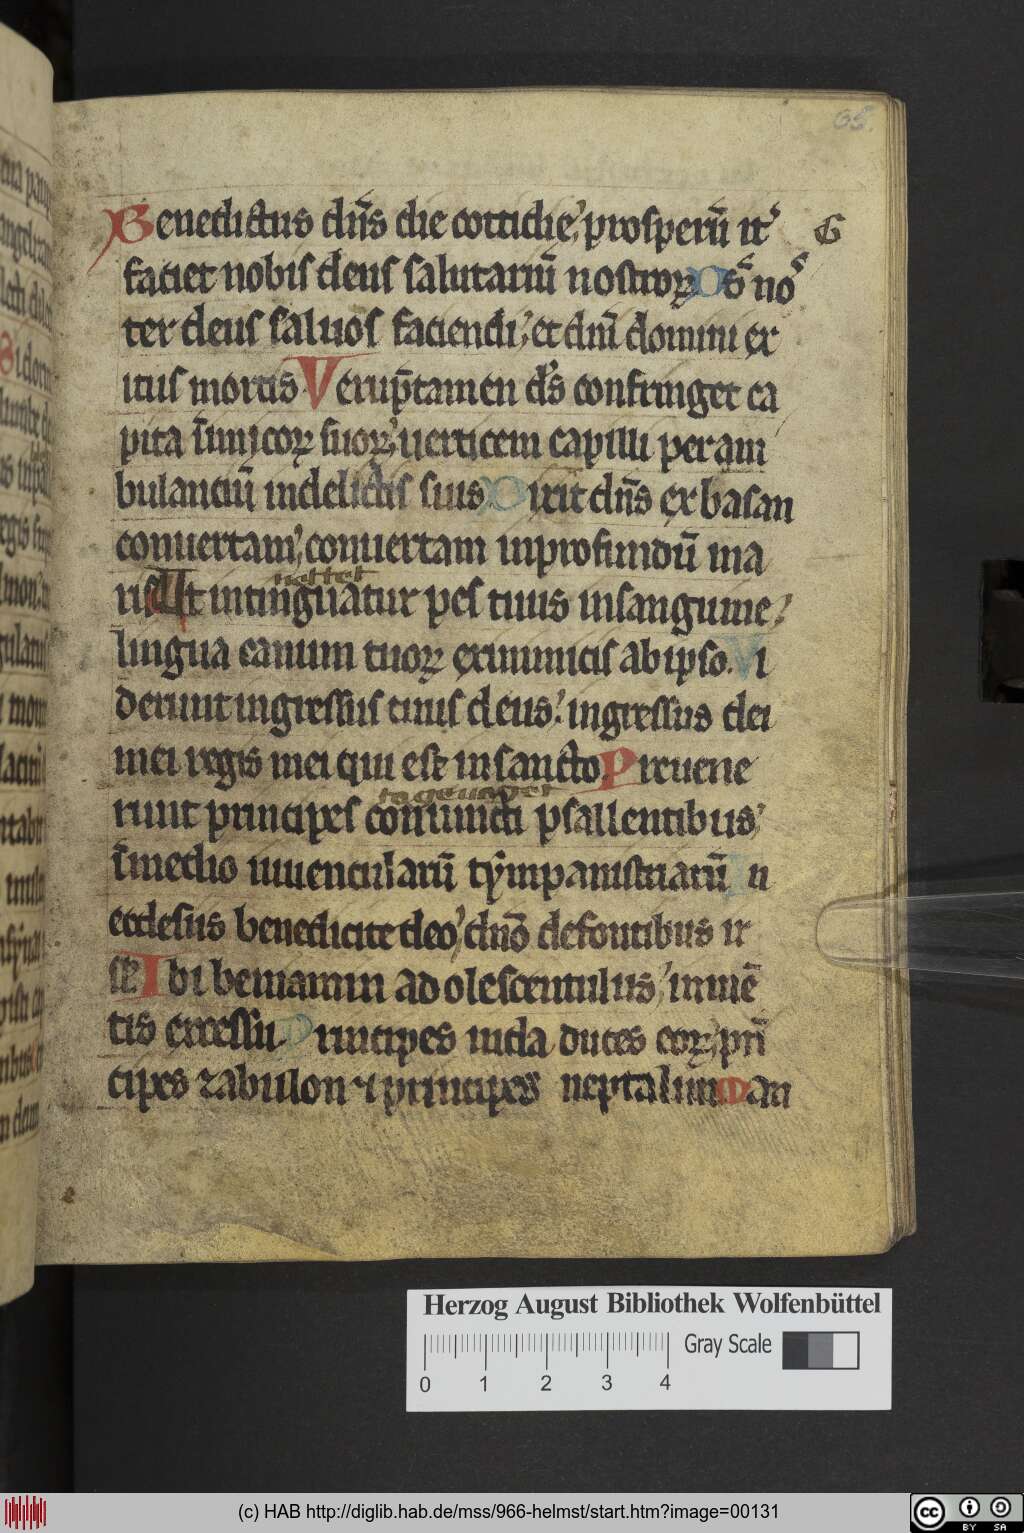 65.
Benedictus dn̄s die cottidie prosperū it᷒
faciet nobis deus salutariū nostroꝝ D s̄ nos᷒
ter deus saluos faciendi et dn̄i domini ex
itus mortis Verūptamen ds̄ confringet ca
pita īimicoꝝ suoꝝ uerticem capilli peram
bulanciū indelictis suis Dixit dn̄s ex basan
conuertam conuertam inprofundū ma
ris Ut intinguatur pes tuus insanguine
nettet
lingua canum tuoꝝ exinimicis abipso. Vi
derunt ingressus tuus deus ingressus dei
mei regis mei qui est insancto Preuene
runt principes coniuncti psallentibus
īmedio iuuencularū tympanistriarū In
ecclesiis benedicite deo dn̄o defontibus isr
Ibi beniamin adolescentulus inmē
tis excessu Principes iuda duces eoꝝ prī
cipes zabulon ⁊ principes neptalim Man
Herzog August Bibliothek Wolfenbüttel
Gray Scale
0 1 2 3 4
(c) HAB http://diglib.hab.de/mss/966-helmst/start.htm?image=00131
cc BY SA